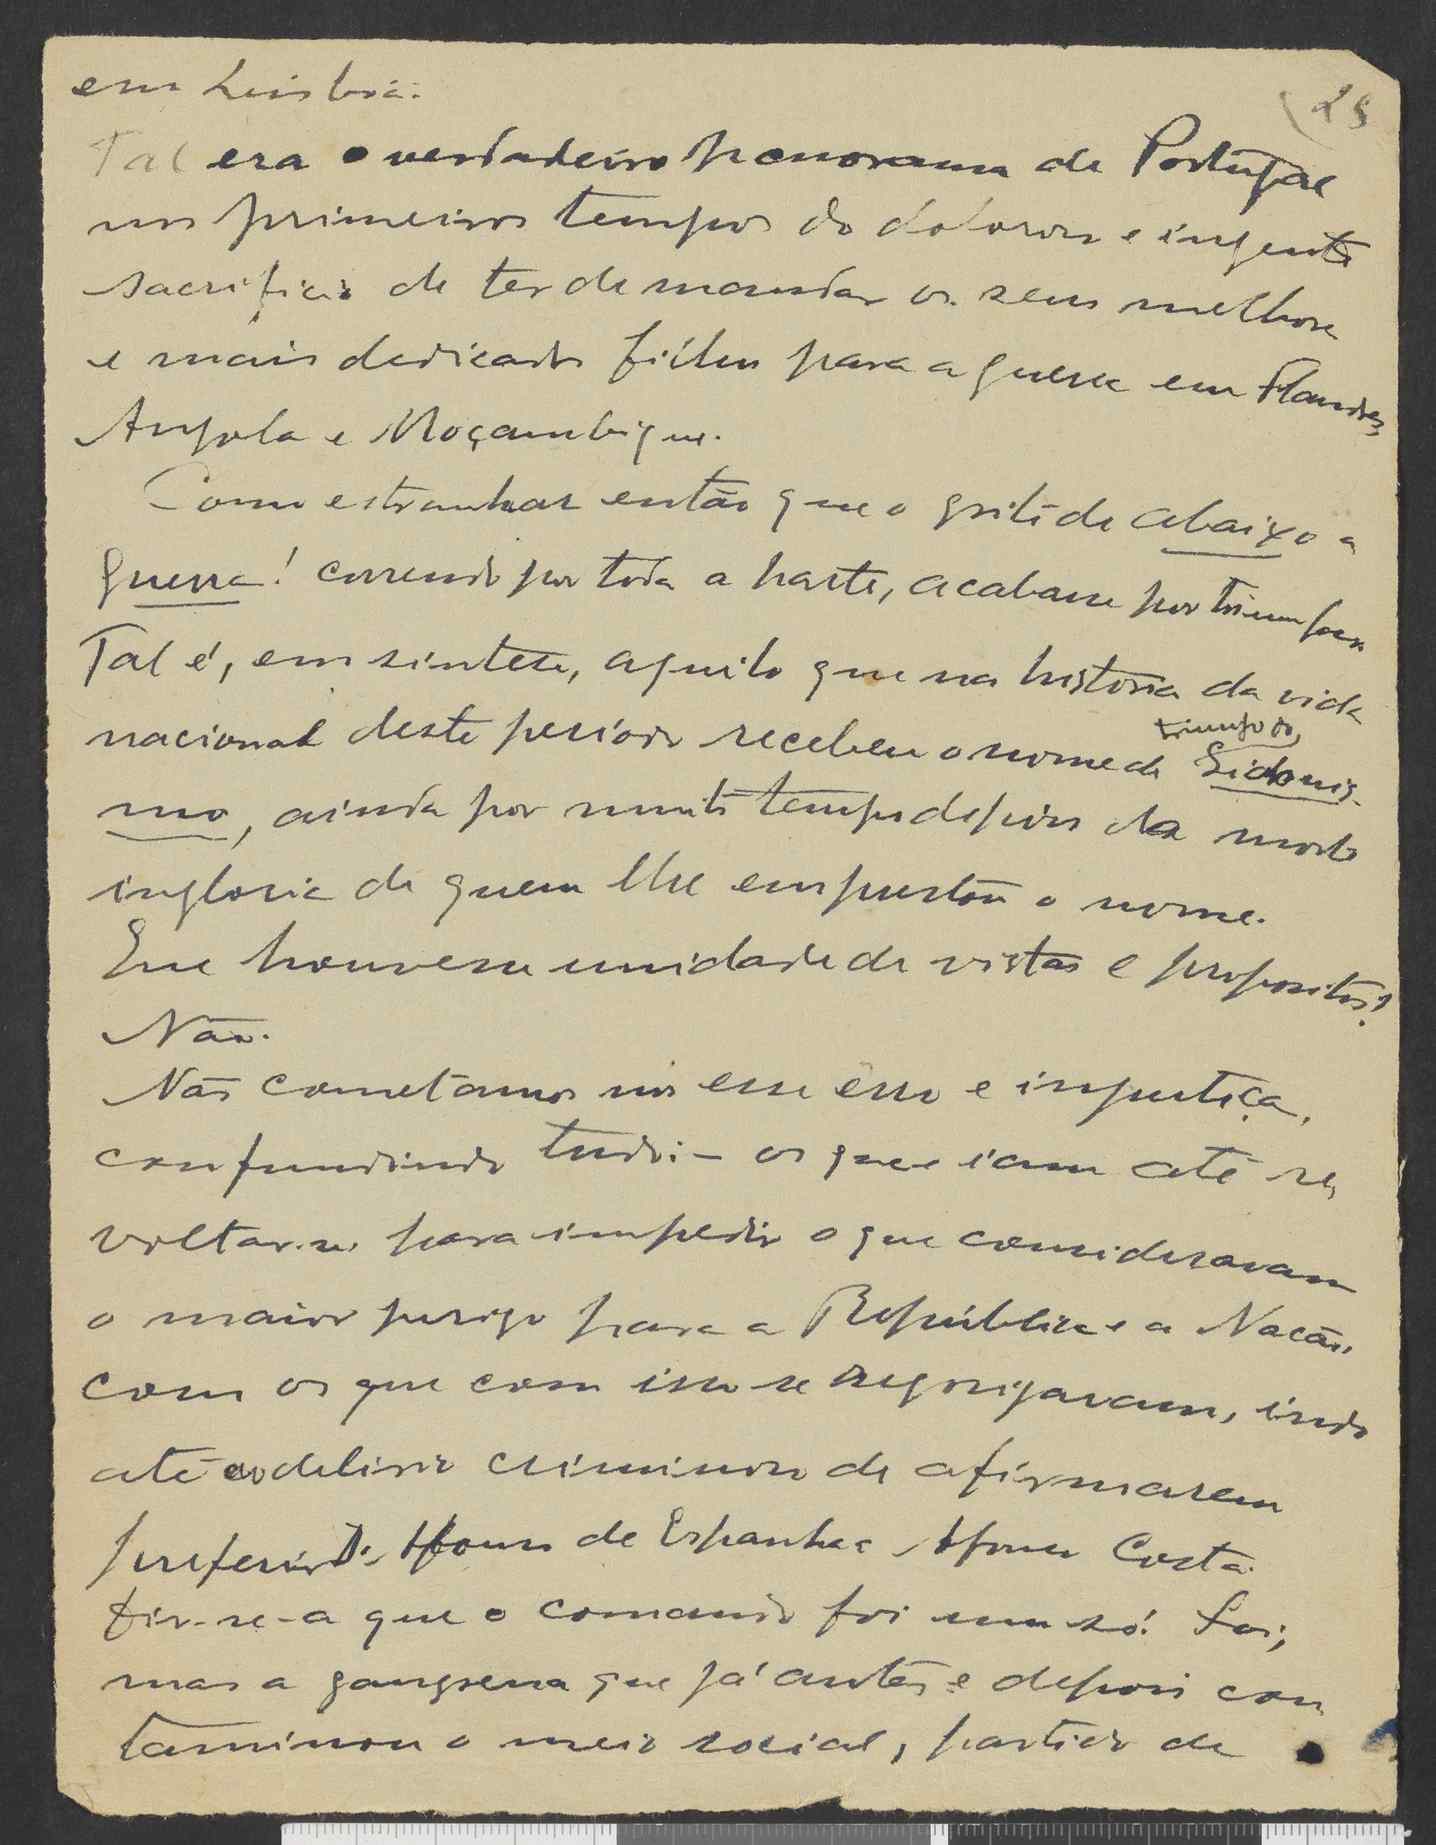 28
em Lisboa.
Tal era o verdadeiro panorama de Portugal
nos primeiros tempos do doloroso e ingente
sacrificio de ter de mandar os seus melhores
e mais dedicados filhos para a guerra em Flandres,
Angola e Moçambique.
Como estranhar então que o grito de abaixo a
guerra! correndo por toda a parte, acabasse por triumfar.
Tal é, em sintese, aquilo que na história da vida
nacional deste periodo recebeu o nome de triunfo do Sidonis-
mo, ainda por muito tempo depois da morte
ingloria de quem lhe emprestou o nome.
Que houvesse unidade de vistas e propositos?
Não.
Não cometamos nós esse êrro e injustiça,
confundindo tudo: - os que iam até re-
voltar-se para impedir o que consideravam
o maior perigo para a República e a Nação,
com os que com isso se regosijavam, indo
até ao delirio criminoso de afirmarem
preferir D. Afonso de Espanha a Afonso Costa.
Dir-se-a que o comando foi um só! Foi,
mas a gangrena que já antes e depois con-
taminou o meio social, partido de